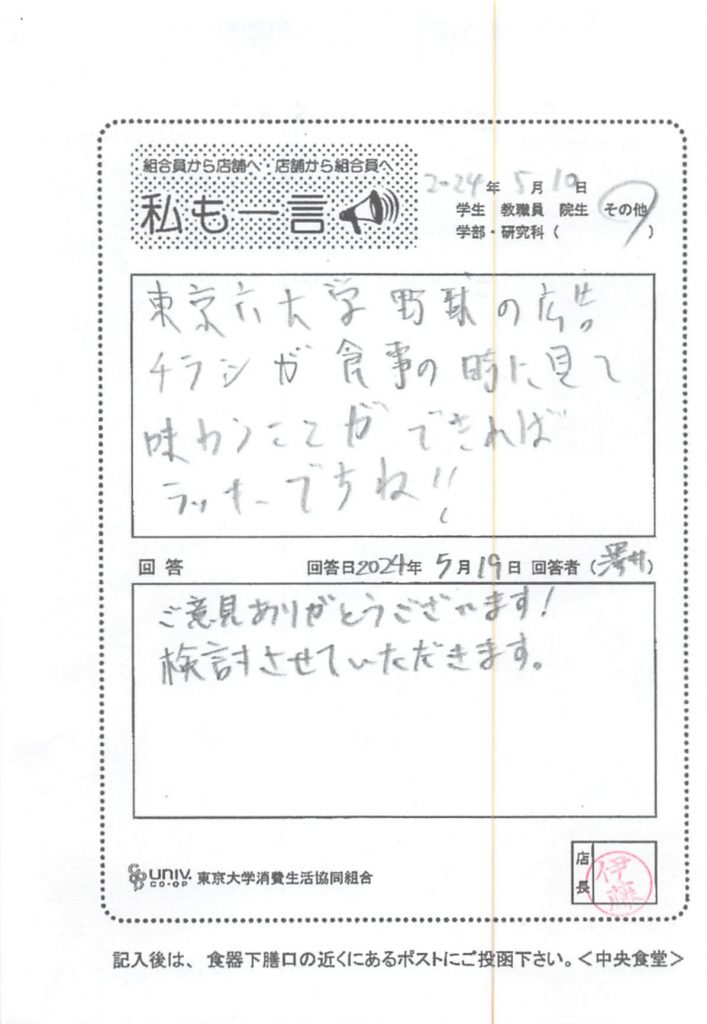 組合員から店舗へ・店舗から組合員へ
私も一言
2024年5月10日
学生 教職員 院生 その他
学部・研究科( )
東京六大学野球の広告
チラシが食事の時に見て
味わうことができれば
ラッキーですね!!
回答 回答日2024年5月19日 回答者(澤井)
ご意見ありがとうございます!
検討させていただきます。
店長
伊藤
UNIV. CO-OP 東京大学消費生活協同組合
記入後は、食器下膳口の近くにあるポストにご投函下さい。<中央食堂>